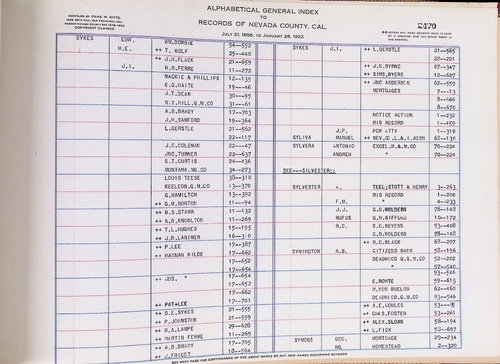 ALPHABETICAL GENERAL INDEX
TO
RECORDS OF NEVADA COUNTY, CAL.
JULY 21, 1856, TO JANUARY 26, 1922
COMPILED BY CHAS. W. KITTS,
COPYRIGHT CLAIMED
2479
SYKES EDW. WM.DOWNIE 54--552
H.E. ++ T. WOLF 25--440
++ J.H.FLACK 21--659
J.I. ++ H.B.FERRE 11--272
MACKIE & PHILLIPS 12--135
E.G.WAITE 19--46
J.T.DEAN 30--95
N.Y.HILL.Q.M.CO 31--61
A.B.BRADY 17--703
J.H.SANFORD 19--364
L.GERSTLE 21--562
22--117
J.C.COLEMAN 22--47
JNO.TURNER 22--637
S.T.CURTIS 24--436
MONTANA.MG.CO 34--273
LOUIS TEESE 38--310
KEELEON.Q.M.CO 13--370
G.HAMILTON 13--392
++ G.M.NORTON 11--94
++ B.S.STARR 11--132
++ S.R.KNOWLTON 11--269
++ T.L.HUGHES 15--195
++ J.B.LARIMER 16--310
++ P.LEE 17--387
++ HANNAH WILDE 17--662
17--652
17--654
++ JOS. " 17--654
17--652
17--662
++ PAT+LEE 17--701
++ D.E.SYKES 21--555
++ P.JOHNSTON 21--559
++ B.A.LAMPE 29--628
++ MARTIN FERRE 11--269
++ A.B.BRADY 17--705
++ J.FRICOT 18--564
SYKES J.I. ++ L.GERSTLE 21--565
22--221
++ J.K.BYRNE 27--347
++ SIMS,BYERS 12--627
++ JNO ANDERSON 62--559
MORTGAGES 7--13
8--466
8--670
NOTICE ACTION 1--232
HIS RECORD 1--459
J.P. POW ATTY 1--310
SYLIVA MANUEL ++ NEV.CO.L.& I.ASSN 68--130
SYLVERA ANTONIO EXCEL.M.& M.CO 70--224
ANDREW " 70--224
SEE---SILVESTER::
SYLVESTER A. TEEL;STOTT & HENRY 3--263
HIS RECORD 1--200
F.M. " 4--233
J.J. G.G.WOLDERS 78--148
RUFUS G.R.GIFFORD 10--172
R.C. S.C.BEVENS 93--408
G.D.WOLDERS 78--148
++ R.C.BLACK 68--297
SYMINGTON R.B. CITIZENS BANK 58--196
DEADWOOD G.Q.M.CO 52--202
" 57--540
93--546
E.ROHTE 59--613
H.VON BUELOW 58--460
DEADWOOD.G.M.CO 93--546
++ A.E.COWLES
++ CHAS.FOSTER 53--261
++ ALEX.SLOAN 58--194
++ L.FICK 58--697
SYMONS GEO. MORTGAGE 29--234
HOMESTEAD 2--370
SEE NEXT PAGE FOR CONTINUANCE OF THE ABOVE NAMES OR ANY NEW NAMES OCCURRING BETWEEN